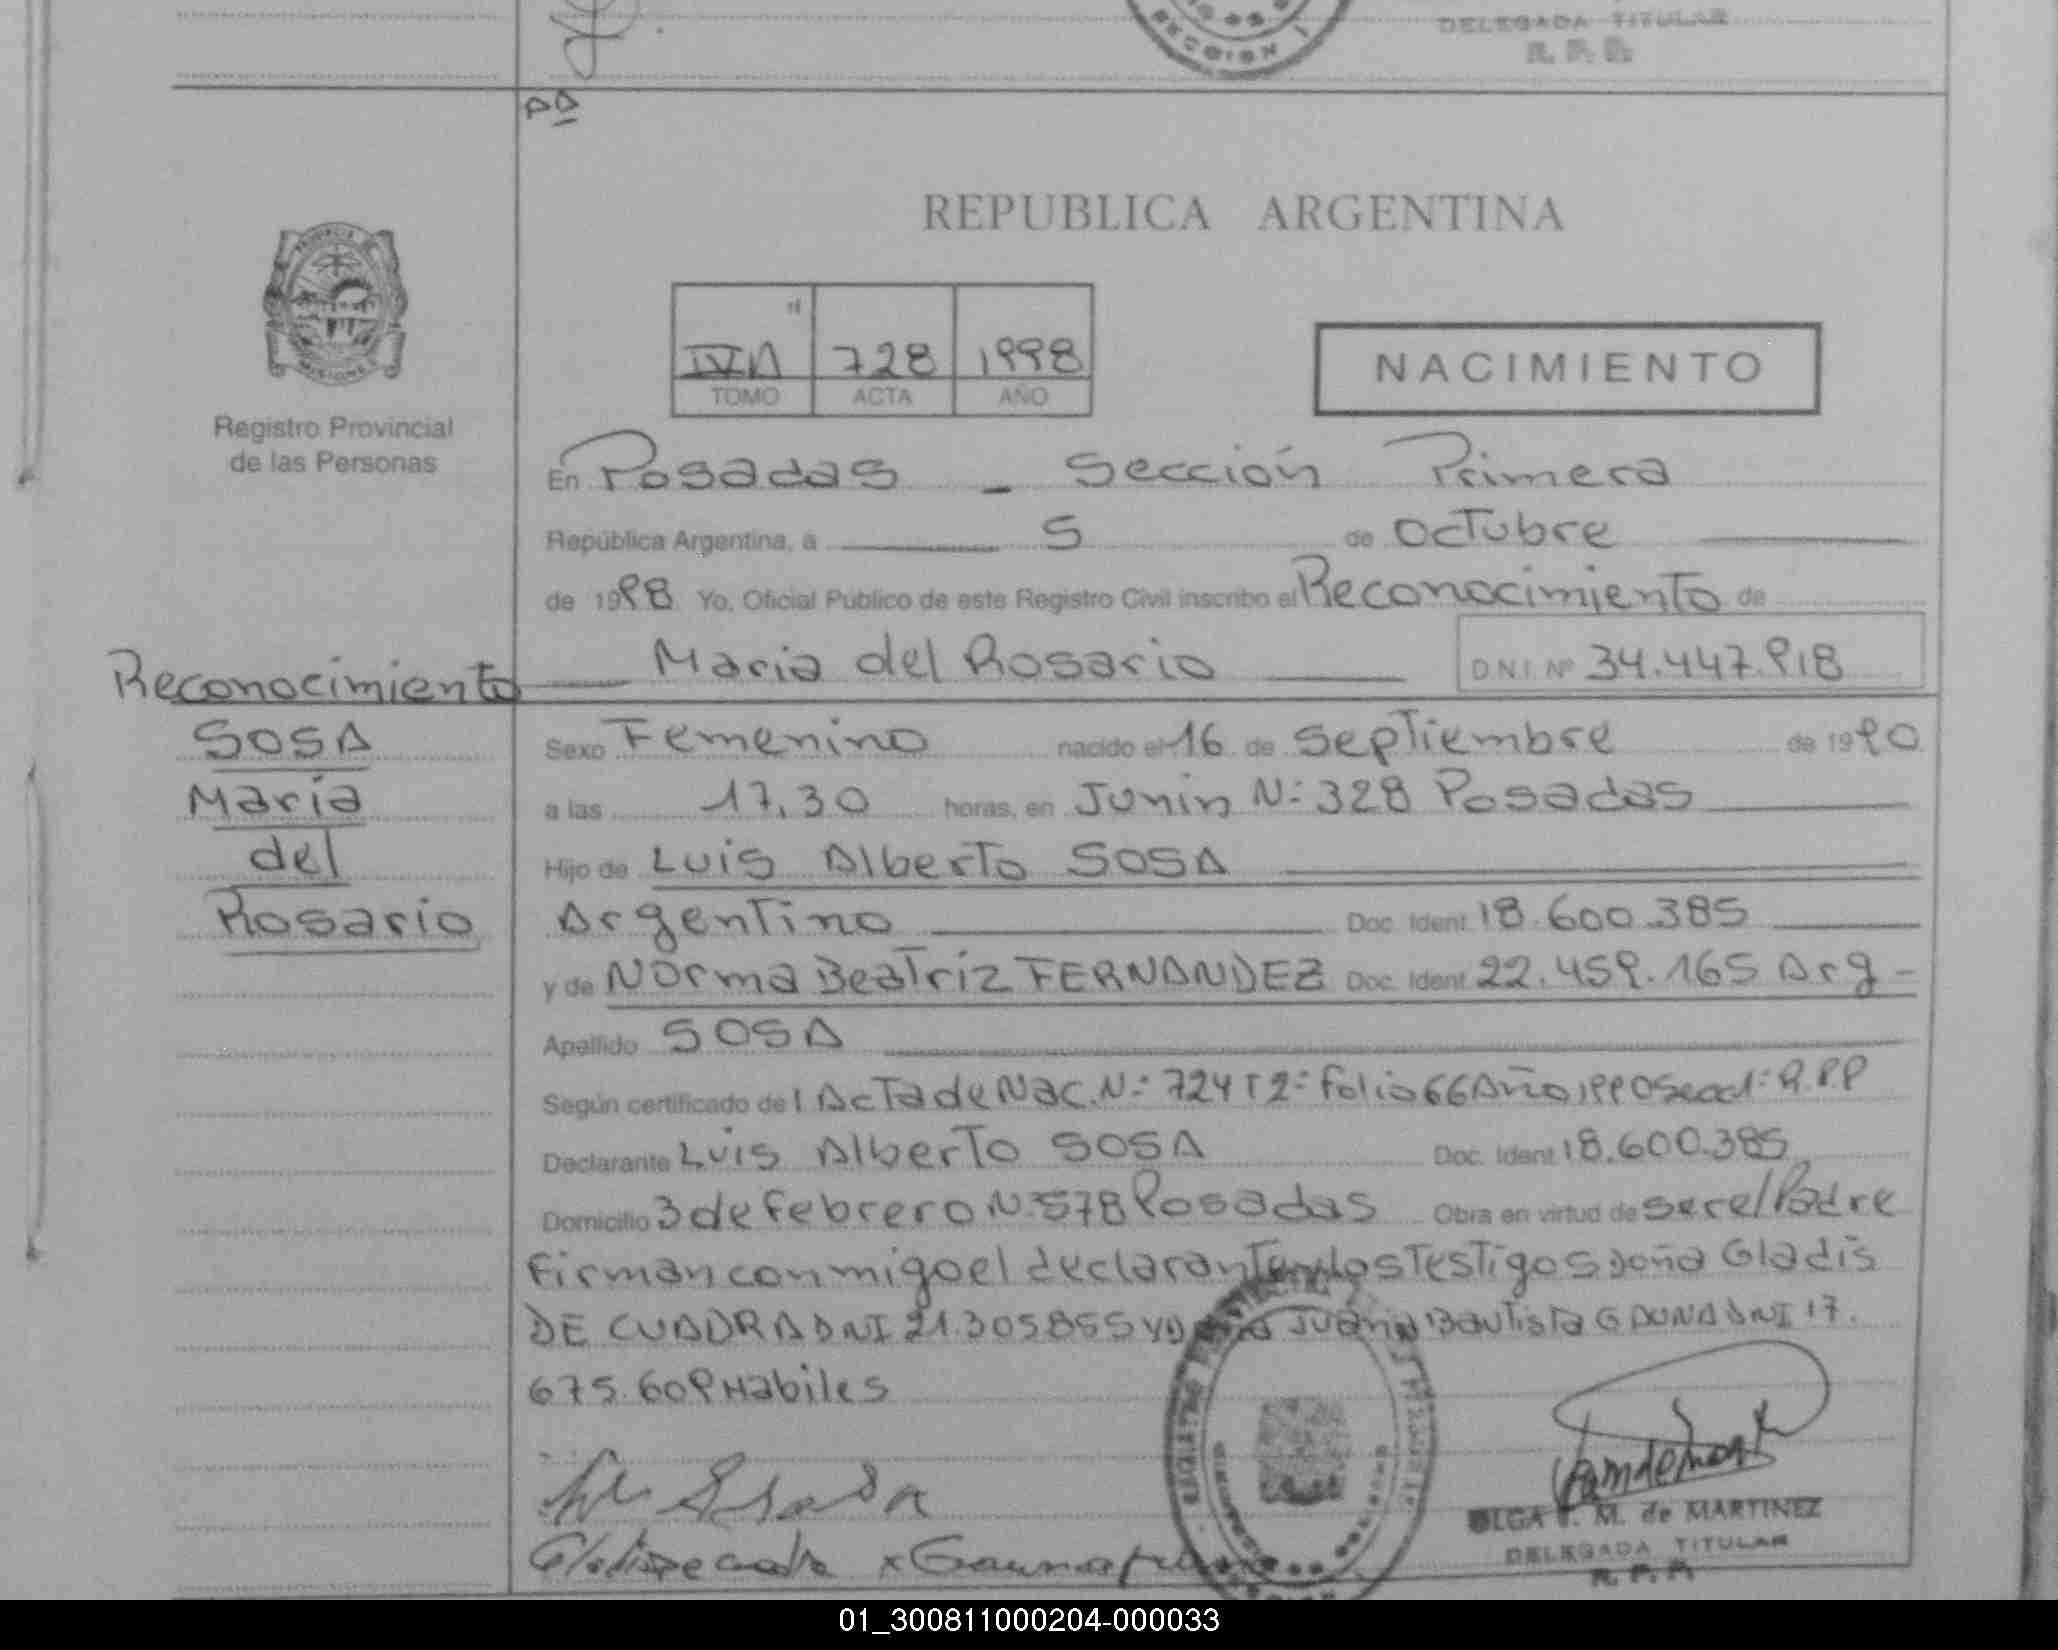 DELEGADA TITULAR
R. P. P.
SECCION 1
REPUBLICA ARGENTINA
PROVINCIA DE
MISIONES
Registro Provincial
de las Personas
IV A 728 1998
TOMO ACTA AÑO
NACIMIENTO
En Posadas - Sección Primera
República Argentina, a 5 de Octubre
de 1998 Yo, Oficial Público de este Registro Civil inscribo el Reconocimiento de
Maria del Rosario D.N.I. Nº 34.447.918
Reconocimiento
SOSA
Maria
del
Rosario
Sexo Femenino nacido el 16 de Septiembre de 1990
a las 17,30 horas, en Junin N: 328 Posadas
Hijo de Luis Alberto SOSA
Argentino Doc. Ident. 18.600.385
y de Norma Beatriz FERNANDEZ Doc. Ident. 22.459.165 Arg -
Apellido SOSA
Según certificado de l Acta de Nac. N: 724 T 2: Folio 66 Año 1990 R.P.P
Declarante Luis Alberto SOSA Doc. Ident. 18.600.385
Domicilio 3 de Febrero N: 578 Posadas Obra en virtud de ser el Padre
Firman conmigo el declarante y los Testigos Doña Gladis
DE CUADRA DNI 21.305855 y Juana Bautista GAUNA DNI 17.
675.609 Habiles
OLGA F. M. de MARTINEZ
DELEGADA TITULAR
R. P. P.
01_300811000204-000033